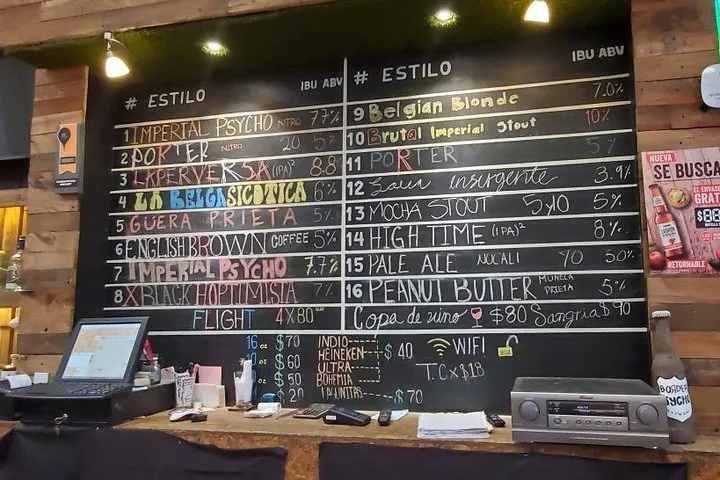 # ESTILO IBU ABV
1 IMPERIAL PSYCHO NITRO 7.7%
2 PORTER NITRO 20 5%
3 LAPERVERSA (IPA)² 8.8
4 LA BELGASICOTICA 6%
5 GUERA PRIETA 5%
6 ENGLISH BROWN COFFEE 5%
7 IMPERIAL PSYCHO 7.7%
8 XBLACK HOPTIMISTA 7%
FLIGHT 4X80
# ESTILO IBU ABV
9 Belgian Blonde 7.0%
10 Brutal Imperial Stout 10%
11 PORTER 5%
12 Sour insurgente 3.9%
13 MOCHA STOUT 5%
14 HIGH TIME (IPA)² 8%
15 PALE ALE NUCALI
16 PEANUT BUTTER MUÑECA PRIETA 5%
Copa de vino $80 Sangria $90
16 oz $70
$60
$50
$20
INDIO
HEINEKEN
ULTRA
BOHEMIA
$40
LAGUNITAS $70
WIFI
T.C x $18
NUEVA
SE BUSCA
EL ENVASE
GRATI
RETORNABLE
BORDER
PSYCHO